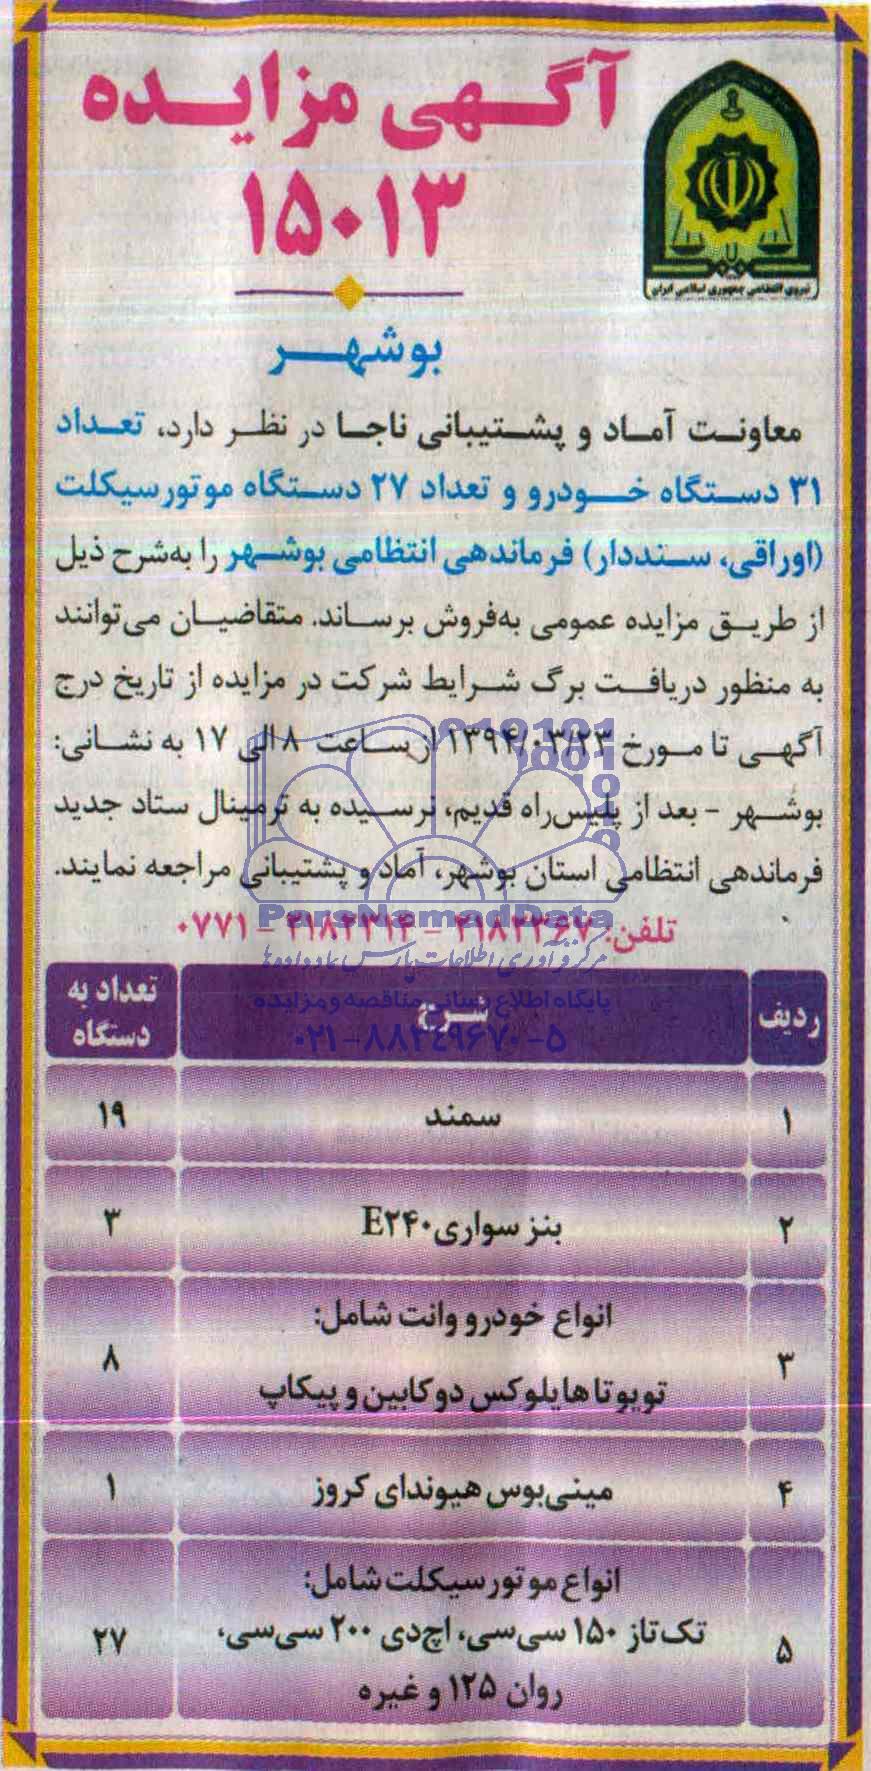 آگهی مزایده
۱۵۰۱۳
نیروی انتظامی جمهوری اسلامی ایران
بوشهر
معاونت آماد و پشتیبانی ناجا در نظر دارد، تعداد
۳۱ دستگاه خودرو و تعداد ۲۷ دستگاه موتورسیکلت
(اوراقی، سنددار) فرماندهی انتظامی بوشهر را به‌شرح ذیل
از طریق مزایده عمومی به‌فروش برساند. متقاضیان می‌توانند
به منظور دریافت برگ شرایط شرکت در مزایده از تاریخ درج
آگهی تا مورخ ۱۳۹۴/۰۳/۲۳ از ساعت ۸ الی ۱۷ به نشانی:
بوشهر - بعد از پلیس‌راه قدیم، نرسیده به ترمینال ستاد جدید
فرماندهی انتظامی استان بوشهر، آماد و پشتیبانی مراجعه نمایند.
تلفن: ۲۱۸۲۲۶۷ - ۲۱۸۲۲۱۴ - ۰۷۷۱
ParsNamadData
مرکز فرآوری اطلاعات پارس نماد داده‌ها
پایگاه اطلاع رسانی مناقصه و مزایده
۰۲۱-۸۸۳۴۹۶۷۰-۵
ردیف شرح تعداد به دستگاه
۱ سمند ۱۹
۲ بنز سواری E۲۴۰ ۳
۳ انواع خودرو وانت شامل: ۸
تویوتا هایلوکس دو کابین و پیکاپ
۴ مینی‌بوس هیوندای کروز ۱
۵ انواع موتورسیکلت شامل: ۲۷
تک‌تاز ۱۵۰ سی‌سی، اچ‌دی ۲۰۰ سی‌سی،
روان ۱۲۵ و غیره